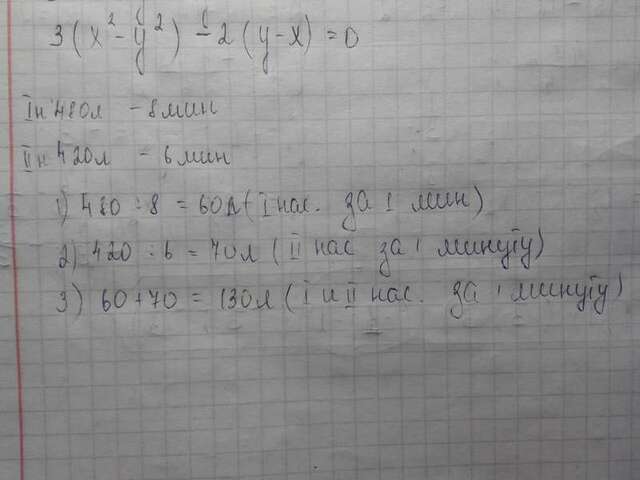 3(x² - y²) - 2(y-x) = 0
I н 480л - 8 мин
II н 420л - 6 мин
1) 480 : 8 = 60л (I нас. за 1 мин)
2) 420 : 6 = 70л (II нас за 1 минуту)
3) 60+70 = 130л (I и II нас. за 1 минуту)